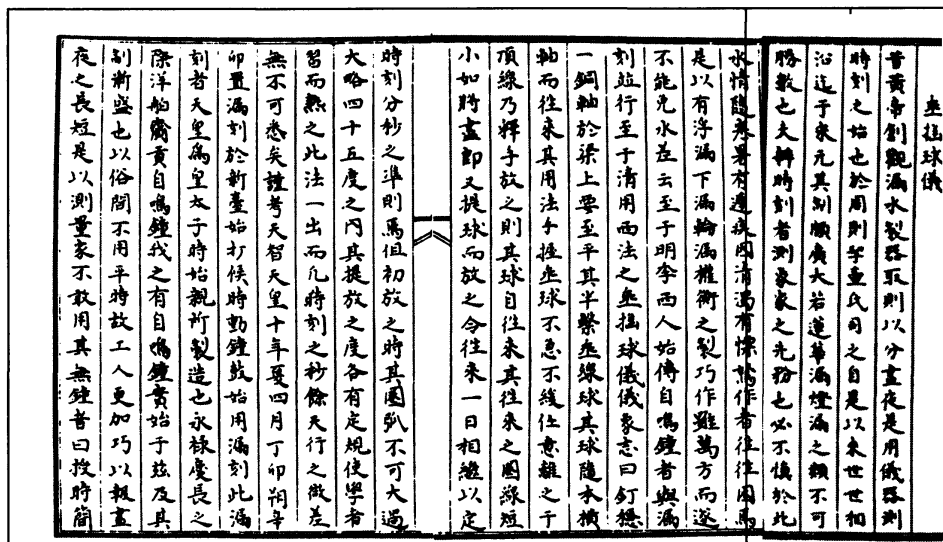 垂揺球儀
昔黄帝創觀漏水製器取則以分晝夜是用儀器測
時刻之始也於周則挈壷氏司之自是以來世世相
沿迄于宋元其制頗廣大若蓮華漏燈漏之類不可
勝數也夫辨時刻者測象家之先務也必不慎於此
水情隨寒暑有遲疾因清濁有 作者往往因焉
是以有浮漏下漏輪漏權衡之製巧作雖萬方而遂
不能免水差云至于明季西人始傳自鳴鐘者與漏
刻竝行至于清用西法之垂揺球儀儀象志曰釘穏
一鋼軸於梁上要至平其半繫垂線球其球隨本横
軸而往來其用法手捶垂球不急不緩任意離之于
頂線乃釋手放之則其球自往來其往來之圏線短
小如將盡即又提球而放之令往來一日相繼以定
時刻分秒之準則焉但初放之時其圏弧不可大過
大略四十五度之内其提放之度各有定規使學者
習而熟之此法一出而凡時刻之秒餘天行之微差
無不可悉矣謹考天智天皇十年夏四月丁卯朔辛
卯置漏刻於新臺始打候時動鐘鼓始用漏刻此漏
刻者天皇為皇太子時始親所製造也永禄慶長之
際洋舶齎貢自鳴鐘我之有自鳴鐘實始于玆及其
制漸盛也以俗間不用平時故工人更加巧以報晝
夜之長短是以測量家不敢用其無鐘者曰按時簡